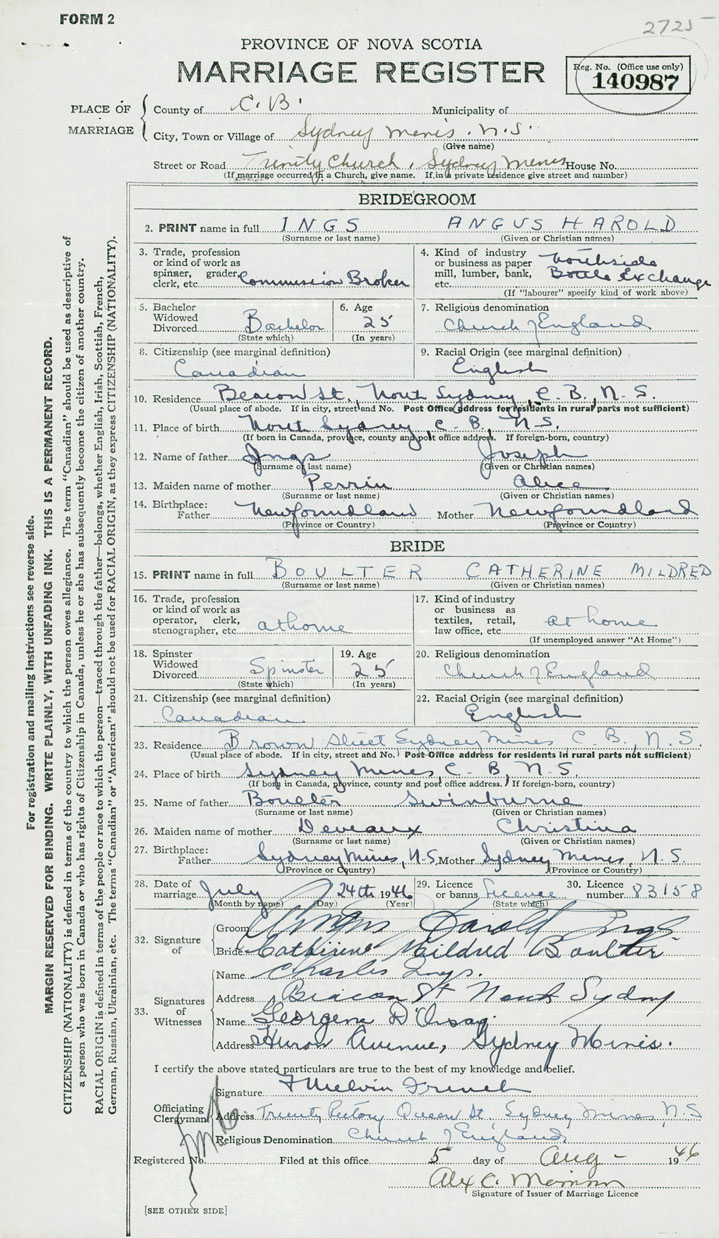 FORM 2
2725
PROVINCE OF NOVA SCOTIA
MARRIAGE REGISTER
Reg. No. (Office use only)
140987
PLACE OF MARRIAGE
County of C.B. Municipality of
City, Town or Village of Sydney Mines. N.S.
(Give name)
Street or Road Trinity Church, Sydney Mines House No.
(If marriage occurred in a Church, give name. If in a private residence give street and number)
BRIDEGROOM
2. PRINT name in full INGS ANGUS HAROLD
(Surname or last name) (Given or Christian names)
3. Trade, profession or kind of work as spinner, grader, clerk, etc. Commission Broker
4. Kind of industry or business as paper mill, lumber, bank, etc. Bottle Exchange
(If "labourer" specify kind of work above)
5. Bachelor Widowed Divorced Bachelor
(State which)
6. Age 25
(In years)
7. Religious denomination Church of England
8. Citizenship (see marginal definition) Canadian
9. Racial Origin (see marginal definition) English
10. Residence Beacon St., North Sydney, C. B., N. S.
(Usual place of abode. If in city, street and No. Post Office address for residents in rural parts not sufficient)
11. Place of birth North Sydney, C. B., N. S.
(If born in Canada, province, county and post office address. If foreign-born, country)
12. Name of father Ings Joseph
(Surname or last name) (Given or Christian names)
13. Maiden name of mother Perrin Alice
(Surname or last name) (Given or Christian names)
14. Birthplace: Father Newfoundland Mother Newfoundland
(Province or Country) (Province or Country)
BRIDE
15. PRINT name in full BOULTER CATHERINE MILDRED
(Surname or last name) (Given or Christian names)
16. Trade, profession or kind of work as operator, clerk, stenographer, etc. at home
17. Kind of industry or business as textiles, retail, law office, etc. at home
(If unemployed answer "At Home")
18. Spinster Widowed Divorced Spinster
(State which)
19. Age 25
(In years)
20. Religious denomination Church of England
21. Citizenship (see marginal definition) Canadian
22. Racial Origin (see marginal definition) English
23. Residence Brown Street Sydney Mines C. B., N. S.
(Usual place of abode. If in city, street and No. Post Office address for residents in rural parts not sufficient)
24. Place of birth Sydney Mines, C. B., N. S.
(If born in Canada, province, county and post office address. If foreign-born, country)
25. Name of father Boulter Swinburne
(Surname or last name) (Given or Christian names)
26. Maiden name of mother Deveaux Christina
(Surname or last name) (Given or Christian names)
27. Birthplace: Father Sydney Mines, N.S. Mother Sydney Mines, N. S.
(Province or Country) (Province or Country)
28. Date of marriage July 24th 1946
(Month by name) (Day) (Year)
29. Licence or banns Licence
(State which)
30. Licence number 83158
32. Signature of
Groom Angus Harold Ings
Bride Catherine Mildred Boulter
33. Signatures of Witnesses
Name Charles Ings.
Address Beacon St North Sydney
Name Georgena D'Orsay.
Address Huron Avenue, Sydney Mines.
I certify the above stated particulars are true to the best of my knowledge and belief.
Officiating Clergyman
Signature F Melvin French
Address Trinity Rectory Queen St. Sydney Mines, N.S
Religious Denomination Church of England
Registered No. Filed at this office 5 day of Aug - 1946
Alex C.
Signature of Issuer of Marriage Licence
[SEE OTHER SIDE]
For registration and mailing instructions see reverse side.
MARGIN RESERVED FOR BINDING. WRITE PLAINLY, WITH UNFADING INK. THIS IS A PERMANENT RECORD.
CITIZENSHIP (NATIONALITY) is defined in terms of the country to which the person owes allegiance. The term "Canadian" should be used as descriptive of
a person who was born in Canada or who has rights of Citizenship in Canada, unless he or she has subsequently become the citizen of another country.
RACIAL ORIGIN is defined in terms of the people or race to which the person—traced through the father—belongs, whether English, Irish, Scottish, French,
German, Russian, Ukrainian, etc. The terms "Canadian" or "American" should not be used for RACIAL ORIGIN, as they express CITIZENSHIP (NATIONALITY).